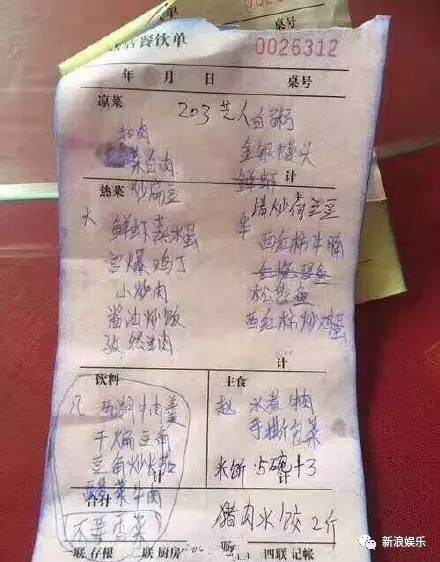 餐饮单
0026312
年 月 日 桌号
凉菜
203艺人 白粥
扣肉 金银馒头
白肉 鲜虾
计
热菜 炒扁豆 清炒荷兰豆
鲜虾蒸水蛋 西红柿牛腩
宫爆鸡丁
小炒肉 松丝鱼
酱油炒饭 西红柿炒鸡蛋
孜然羊肉
计
饮料 主食
西湖牛肉羹 赵 水煮牛肉
干煸豆角 手撕包菜
豆角炒茄 米饭 5碗+3
计
酸菜牛肉
合计 猪肉水饺 2斤
不要香菜
联 存根 联 厨房 四联 记帐
新浪娱乐